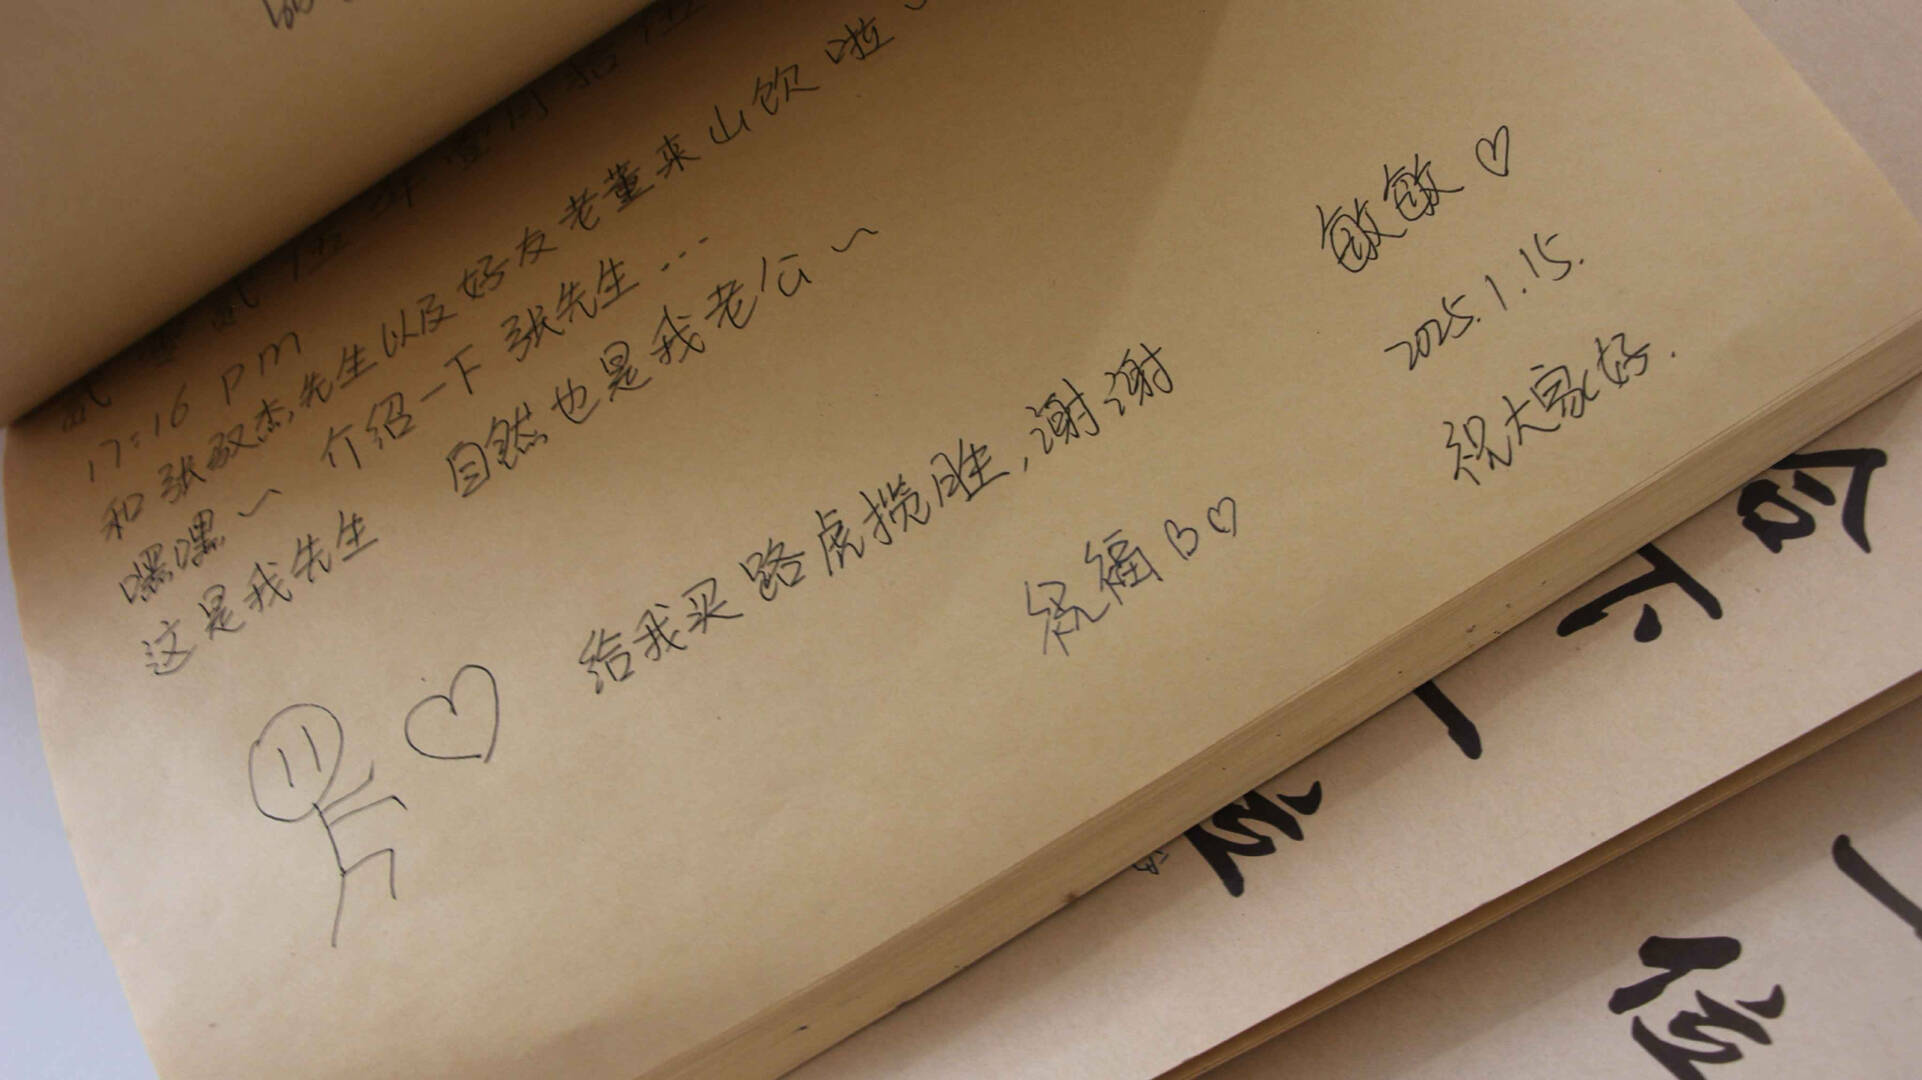 17:16 pm
和张驭杰先生以及好友老董来山饮啦~
嘿嘿~ 介绍一下 张先生...
这是我先生 自然也是我老公~
给我买路虎揽胜,谢谢
祝福B♡
敏敏♡
2025.1.15.
祝大家好.
给
下
一
位
一
位